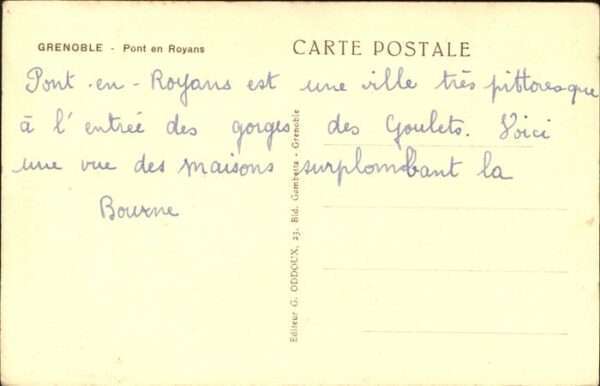 GRENOBLE - Pont en Royans
CARTE POSTALE
Pont-en-Royans est une ville très pittoresque
à l'entrée des gorges des Goulets. Voici
une vue des maisons surplombant la
Bourne
Editeur G. ODDOUX, 23, Bld. Gambetta - Grenoble